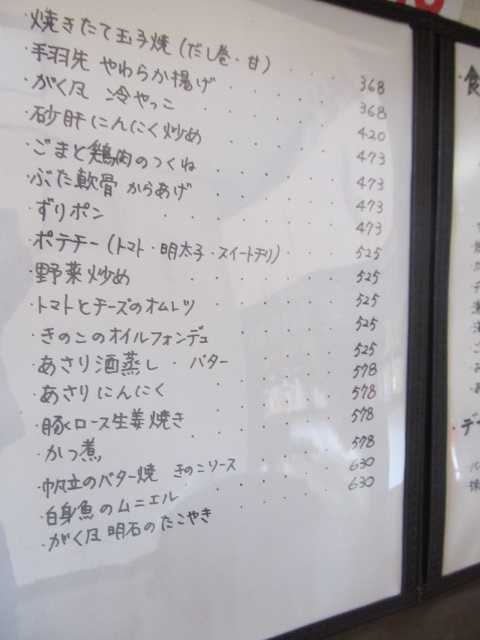 ・焼きたて玉子焼(だし巻・甘) ････ 368
・手羽先 やわらか揚げ ････ 368
・がく風 冷やっこ ････ 420
・砂肝にんにく炒め ････ 473
・ごまと鶏肉のつくね ････ 473
・ぶた軟骨 からあげ ････ 473
・ずりポン ････ 473
・ポテチー(トマト・明太子・スイートチリ) ････ 525
・野菜炒め ････ 525
・トマトとチーズのオムレツ ････ 525
・きのこのオイルフォンデュ ････ 525
・あさり酒蒸し・バター ････ 525
・あさりにんにく ････ 578
・豚ロース生姜焼き ････ 578
・かつ煮 ････ 578
・帆立のバター焼 きのこソース ････ 578
・白身魚のムニエル ････ 630
・がく風 明石のたこやき ････ 630
・食
・デー